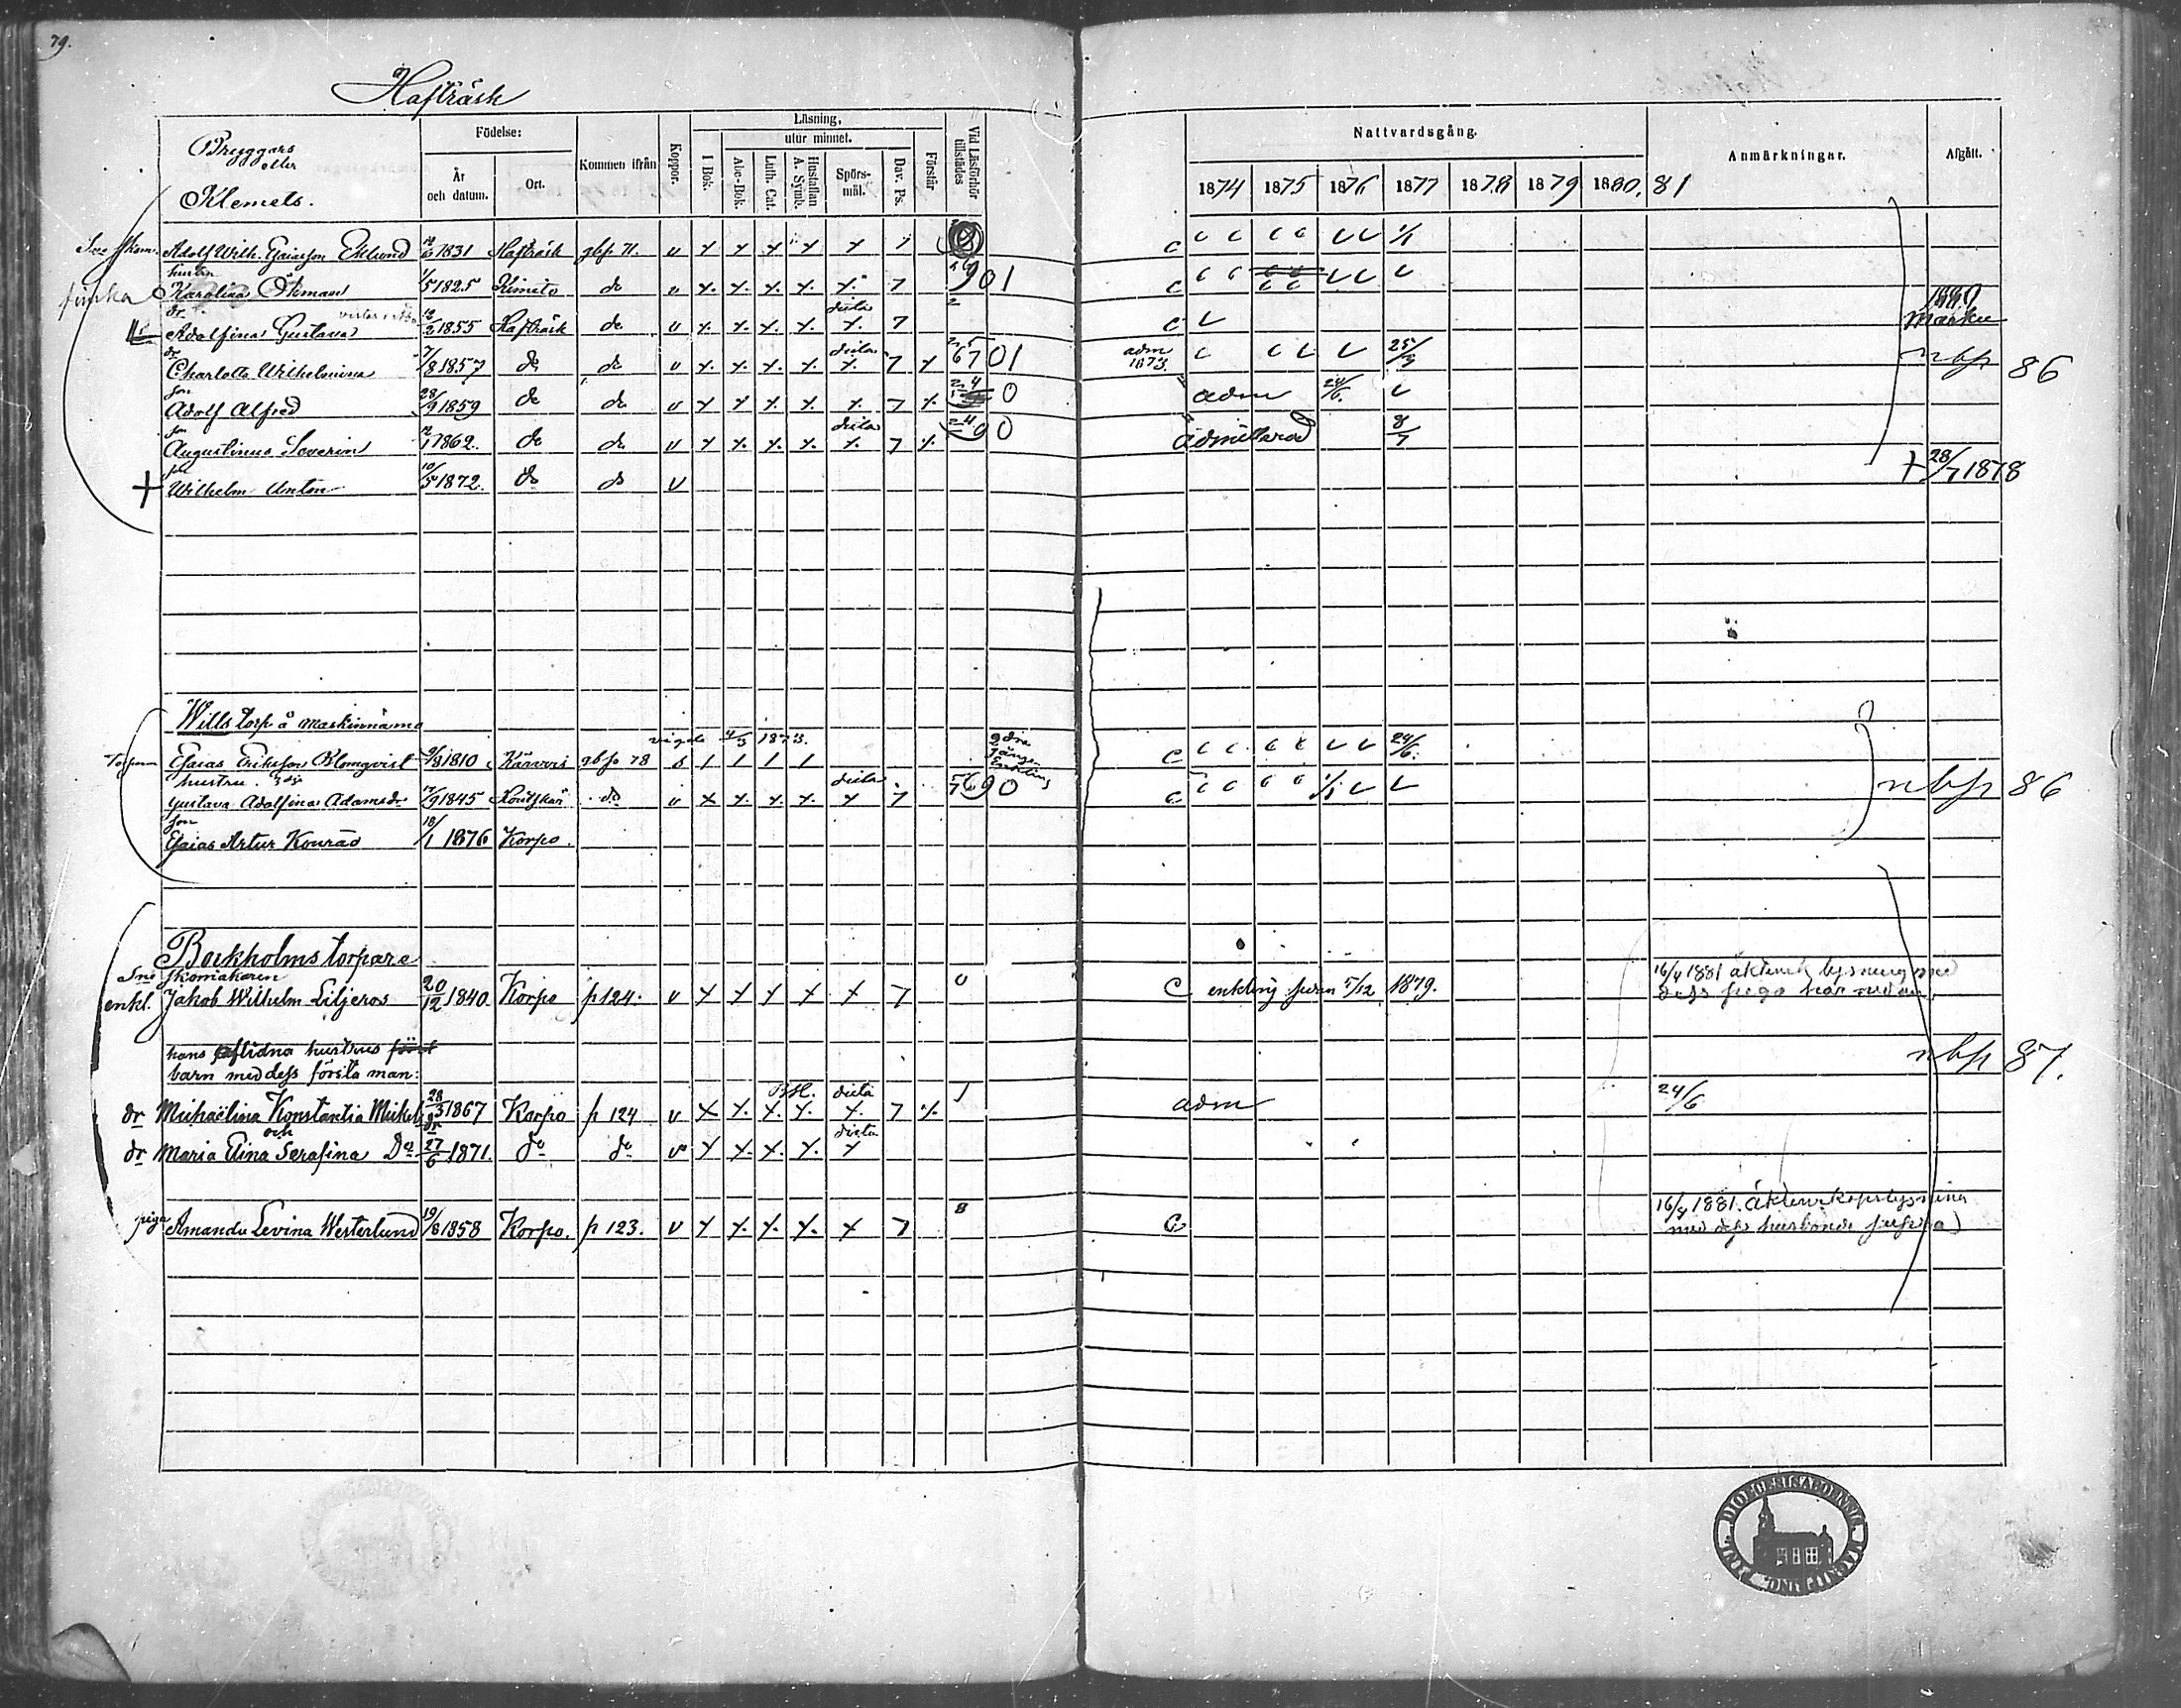 79.
Hafträsk
Bryggars
eller
Klemets.
Födelse:
År
och datum.
Ort.
Kommen ifrån
Koppor.
Läsning,
utur minnet.
I Bok.
Abc-Bok.
Luth. Cat.
Hustaflan
A. Symb.
Spörs-
mål.
Dav. Ps.
Förstår
Vid Läsförhör
tillstädes
Nattvardsgång.
1874 1875 1876 1877 1878 1879 1880, 81
Anmärkningar.
Afgått.
Adolf Wilh. Esaiasson Eklund 1831 Hafträsk gbp 71. v x x x x x 7 c
hustru
Karolina Öhman 1/5 1825 Kimito do v x. x. x. x. x. 7 901 c
dr
Adolfina Gustava 1855 Hafträsk do v x. x. x. x. dicta x. 7 c
1880
dr
Charlotta Wilhelmina 7/8 1857 do do v x. x. x. x. dicta x. 7 x 6701 adm 1873. 25/3 nbp 86
son
Adolf Alfred 28/9 1859 do do v x x x. x. x. 7 x. 0 adm 24/6.
son
Augustinus Severin 1862. do do v x x. x. x. dicta x. 7 x. 0 admitterad 8/7
son
+ Wilhelm Anton 10/5 1872. do do v + 28/7 1878
Wills torp å Maskinnämo
vigde 4/3 1873.
Torparen Esaias Eriksson Blomqvist 1810 gbp 78 s 1 1 1 1 c 24/6.
hustru
Gustava Adolfina Adamsdr 1845 Houtskär do v x x. x. x. dicta x 7 5690 c nbp 86
son
Esaias Artur Konrad 18/1 1876 Korpo.
Borkholms torpare
Sne skomakaren
enkl. Jakob Wilhelm Liljeros 20/12 1840. Korpo p 124. v x x x x x 7 0 C enkling sedan 5/12 1879. 16/4 1881 äktensk lysning med
dess piga här nedan,
hans aflidna hustrus
barn med dess första man:
nbp 87.
dr Michaëlina Konstantia Mickelsdr 28/3 1867 Korpo p 124 v x x. x. x. dicta x. 7 x. 1 adm 24/6
och
dr Maria Elina Serafina Do 27/6 1871. do do v x x. x. x. dicta x
piga Amanda Levina Westerlund 19/8 1858 Korpo. p 123. v x x. x. x. x 7 8 C 16/4 1881. äktenskapslysning
med dess husbonde